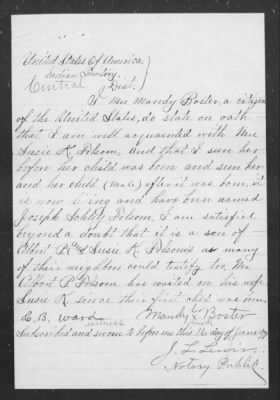 United States Of America,
Indian Territory,
Central Dist.
I Mrs Mandy Boster, a citizen
of the United States, do state on oath
that I am well acquanted with Mrs
Susie K. Folsom, And that I seen her
before her child was born and seen her
and her child (male) after it was born, it
is now living and have been named
Joseph Folsom I am satisfied
beyond a doubt that it is a son of
Elbert P. and Susie K. Folsoms as many
of their neighbors could testify too Mr
Elbert P Folsom has waited on his wife
Susie K since their first child was born.
C. B. Ward Mandy x Boster
witness mark
Subscribed and sworne to before me this 16 day of June
J. L. Lewis
Notary Public